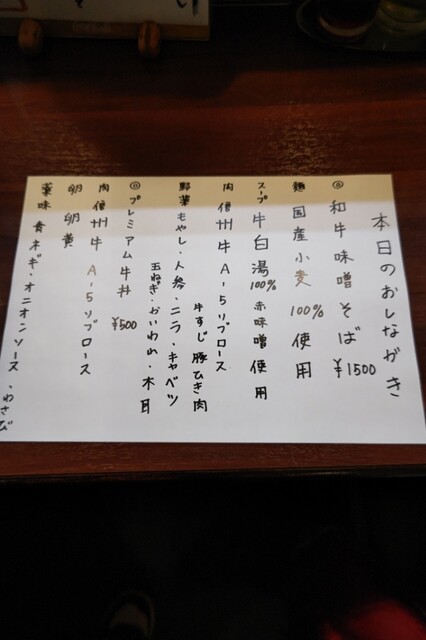 本日のおしながき
◎ 和牛味噌そば ¥1500
麺 国産小麦 100% 使用
スープ 牛白湯100% 赤味噌使用
肉 信州牛 A-5リブロース
牛すじ 豚ひき肉
野菜 もやし・人参・ニラ・キャベツ
玉ねぎ・かいわれ・木耳
◎ プレミアム牛丼 ¥500
肉 信州牛 A-5リブロース
卵 卵黄
薬味 青ネギ・オニオンソース・わさび